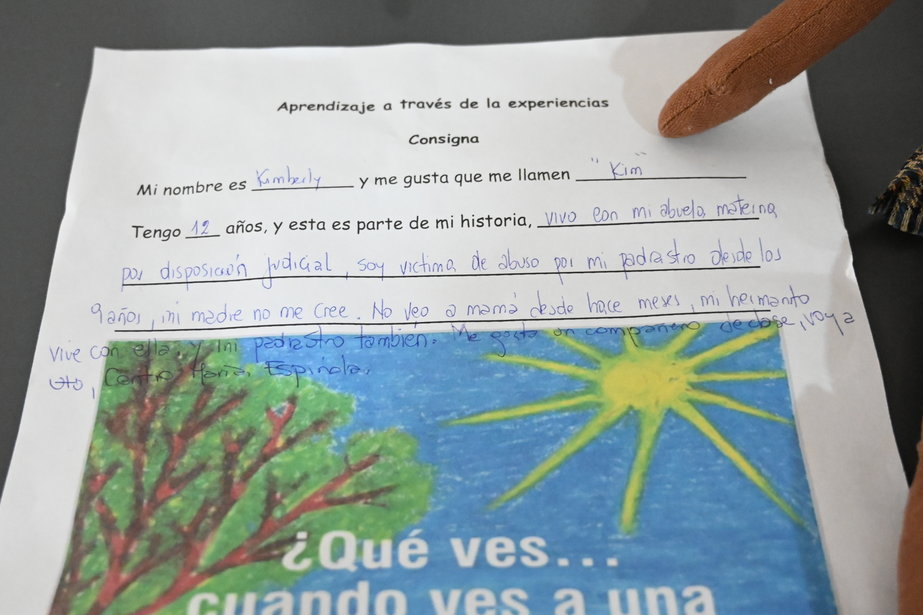 Aprendizaje a través de la experiencias
Consigna
Mi nombre es Kimberly y me gusta que me llamen "Kim"
Tengo 12 años, y esta es parte de mi historia, vivo con mi abuela materna
por disposición judicial, soy victima de abuso por mi padrastro desde los
9 años, mi madre no me cree. No veo a mamá desde hace meses, mi hermanito
vive con ella, y mi padrastro tambien. Me gusta un compañero de clase, voy a
Centro María Espínola.
¿Qué ves...
cuando ves a una